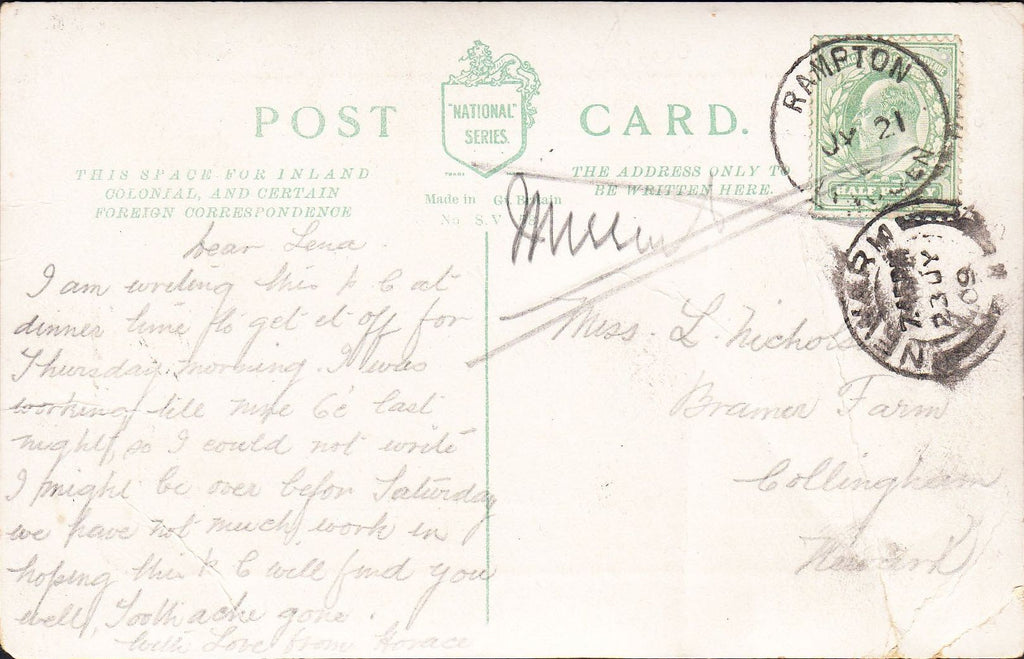 POST CARD.
"NATIONAL"
SERIES.
THIS SPACE FOR INLAND
COLONIAL, AND CERTAIN
FOREIGN CORRESPONDENCE
TRADE
Made in Gt. Britain
No S.V
THE ADDRESS ONLY TO
BE WRITTEN HERE.
RAMPTON
JY 21
HALF PENNY
NEWARK
23 JY
09
Dear Lena.
I am writing this P C at
dinner time to get it off for
Thursday morning. I was
working till nine o'c last
night, so I could not write
I might be over befor Saturday
we have not much work in
hoping this P C will find you
well, Toothache gone.
With Love from Horace
Miss. L. Nichols
Bramer Farm
Collingham
Newark